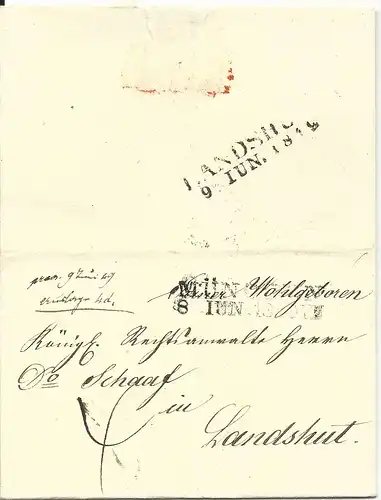 LANDSHUT
9 IUN. 1849
praes. 9 Juni 49
MÜNCHEN
8 IUN. 1849
Seiner Wohlgeboren
Königl. Rechtsanwalte Herrn
Do Schaaf
in
Landshut.